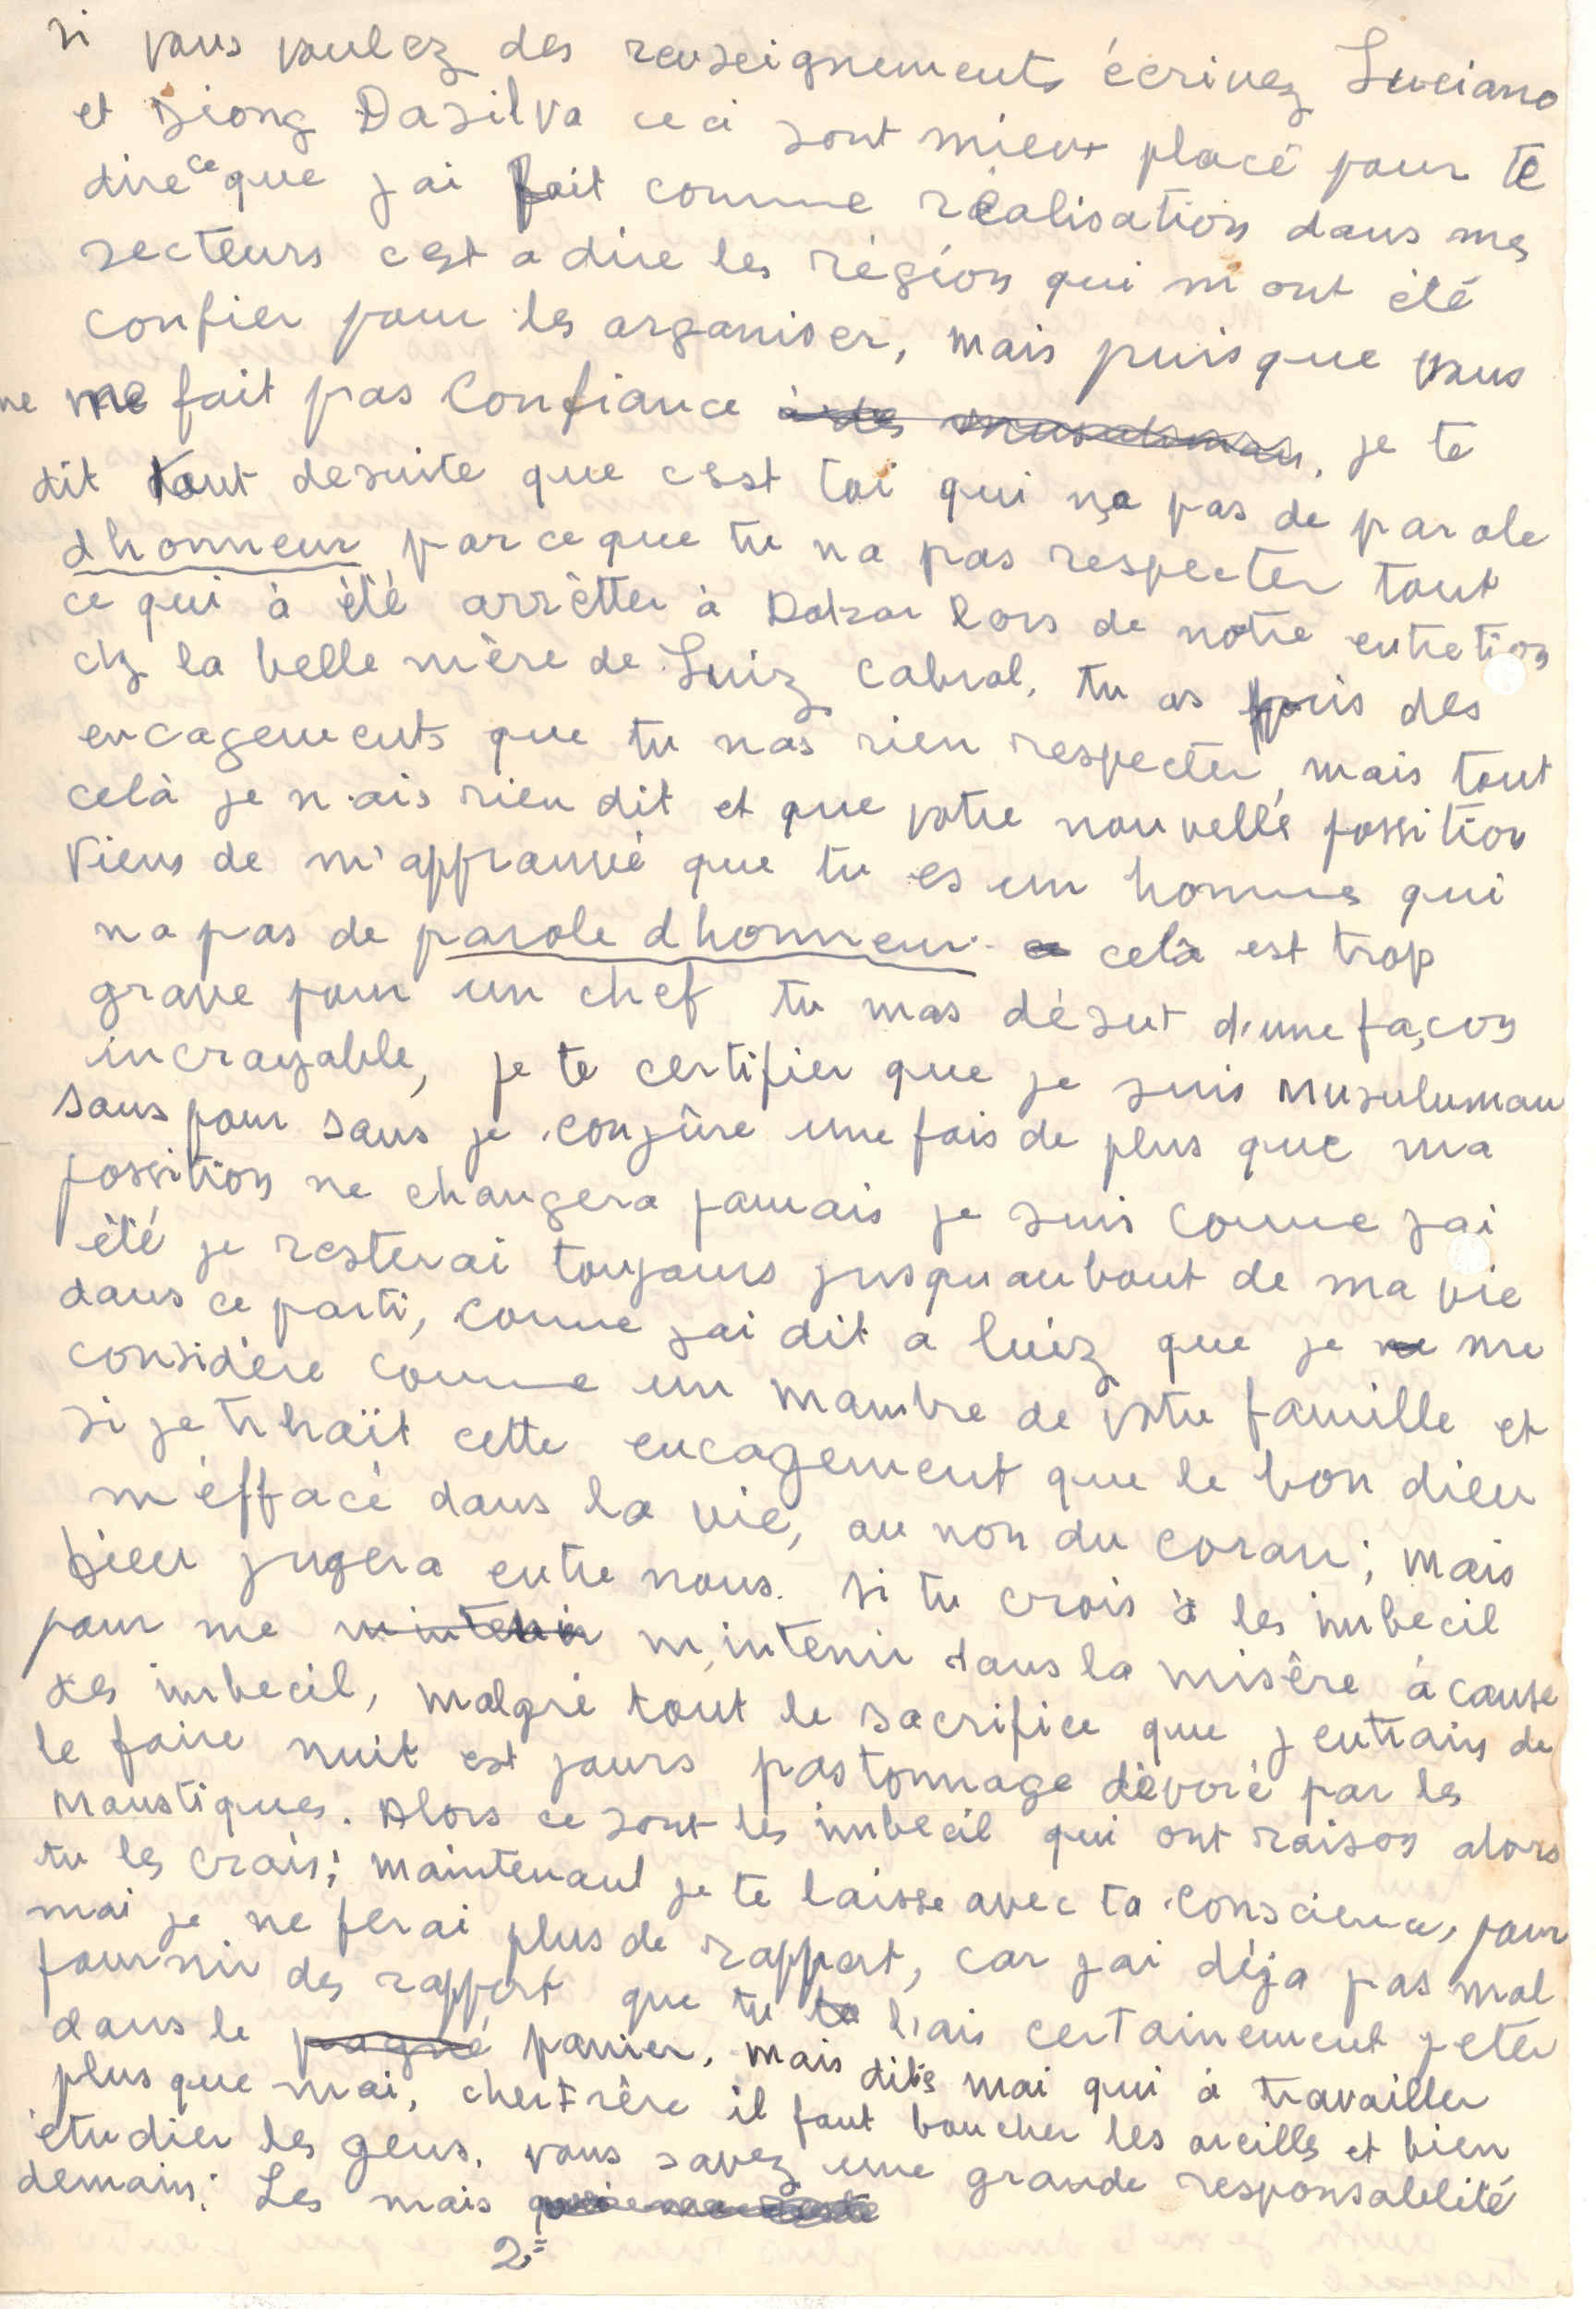 si vous voulez des renseignements écrivez Luciano
et Siong Dasilva ceci sont mieux placé pour te
dire ce que jai fait comme réalisation dans mes
secteurs cest a dire les région qui m'ont été
confier pour les organiser, mais puisque vous
ne me fait pas Confiance à des musulman, je te
dit tout desuite que cest toi qui n,a pas de parole
dhonneur parceque tu na pas respecter tout
ce qui à été arrêtter à Dakar lors de notre entretion
chz la belle mère de Luiz Cabral, tu as pris des
encagements que tu nas rien respecter, mais tout
celà je n'ais rien dit et que votre nouvellé possition
Viens de m'apprauvé que tu es un homme qui
na pas de parole dhonneur. celà est trop
grave pour un chef tu mas désut d'une façon
incroyable, je te certifier que je suis musuluman
sans pour sans je conjûre une fois de plus que ma
possition ne changera jamais je suis comme jai
été je resterai toujours jusquaubout de ma vie
dans ce parti, comme jai dit a luiz que je ne me
considère comme un mambre de votre famille et
si je trhaït cette encagement que le bon dieu
m'éffacé dans la vie, au non du coran; mais
Dieu jugera entre nous. Si tu crois à les imbécil
pour me mintenir m,intenir dans la misêre à cause
des imbecil, malgré tout le sacrifice que jentrain de
le faire nuit est jours pastonnage dévoré par les
maustiques. Alors ce sont les imbecil qui ont raison alors
tu les crais; maintenant je te laisse avec ta conscience, pour
moi je ne ferai plus de rapport, car jai déja pas mal
fournir des rapport que tu l'ais certainement jeter
dans le pagné panier, mais dites moi qui à travailler
plus que moi, cher Frère il faut boucher les oreills et bien
étudier les gens, vous savez une grande responsabilité
demain: Les mais
2=